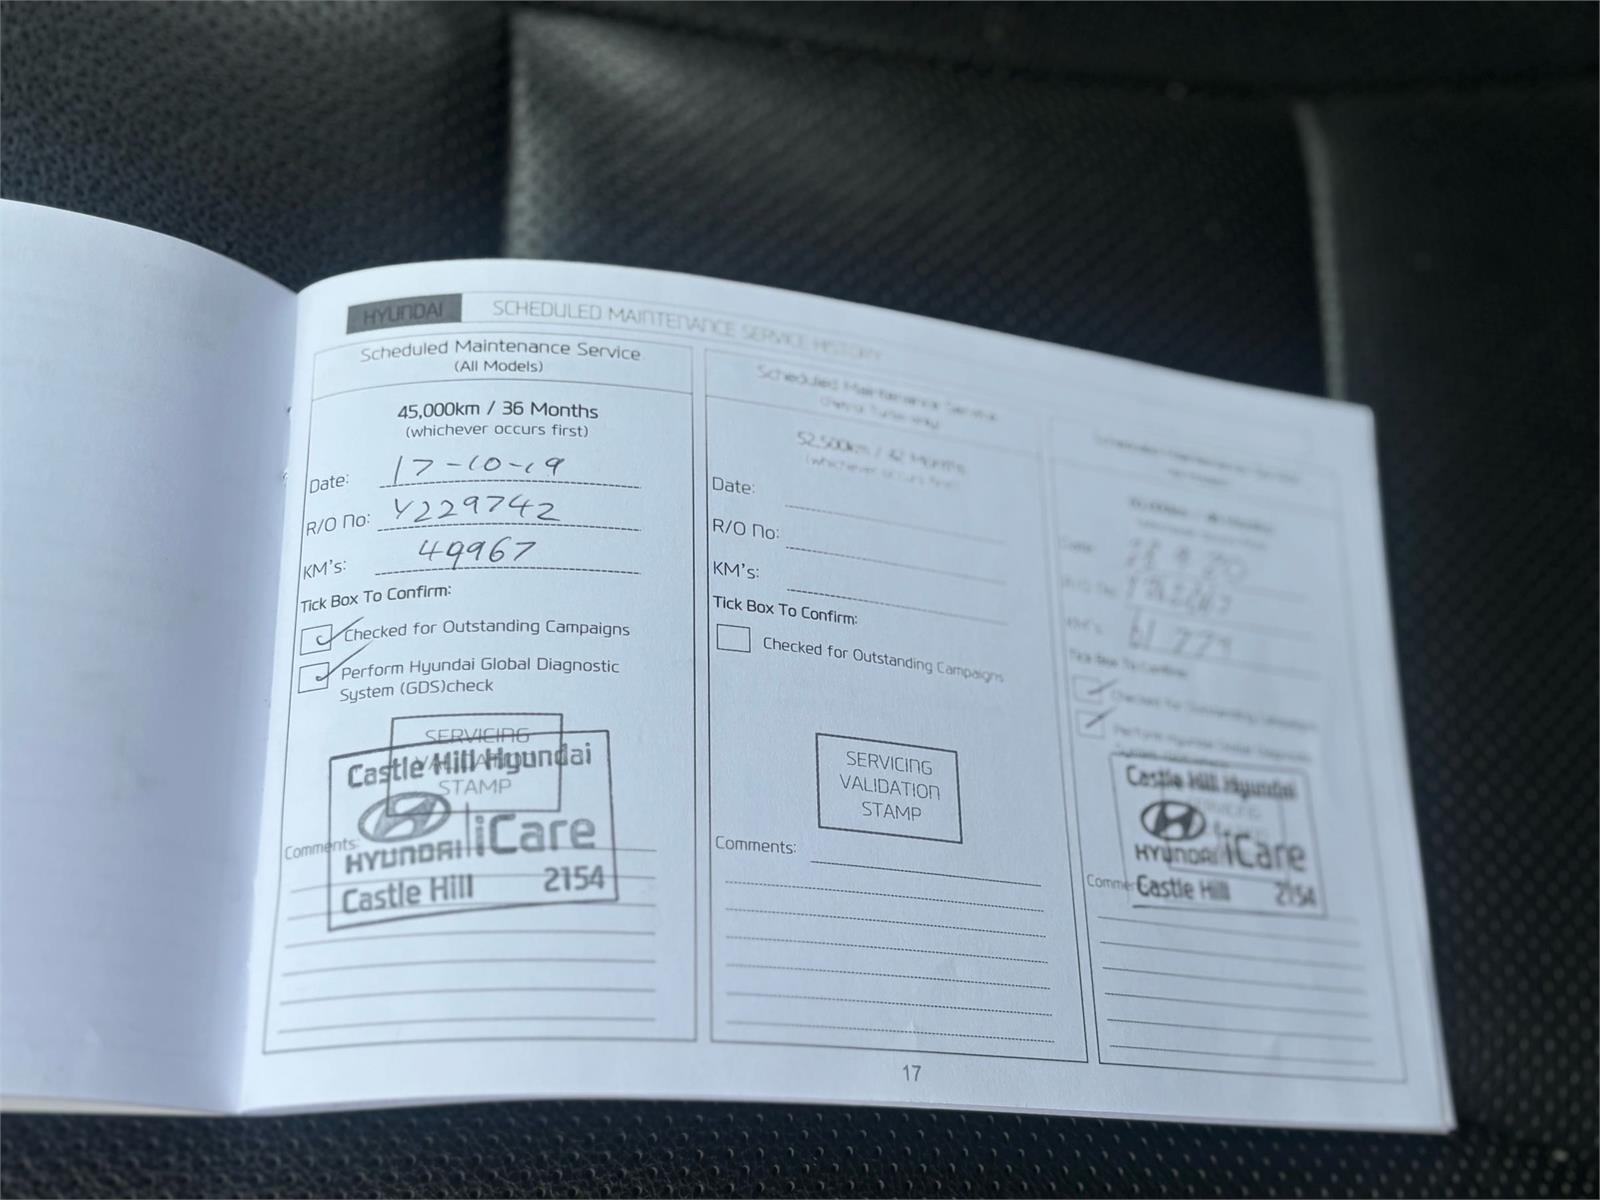 HYUNDAI
SCHEDULED MAINTENANCE SERVICE HISTORY
Scheduled Maintenance Service
(All Models)
45,000km / 36 Months
(whichever occurs first)
Date: 17-10-19
R/O No: Y229742
KM's: 49967
Tick Box To Confirm:
Checked for Outstanding Campaigns
Perform Hyundai Global Diagnostic
System (GDS)check
SERVICING
VALIDATION
STAMP
Castle Hill Hyundai
HYUNDAI iCare
Castle Hill 2154
Comments:
Scheduled Maintenance Service
52,500km / 42 Months
(whichever occurs first)
Date:
R/O No:
KM's:
Tick Box To Confirm:
Checked for Outstanding Campaigns
SERVICING
VALIDATION
STAMP
Comments:
Scheduled Maintenance Service
Date:
R/O No:
KM's: 61 779
Tick Box To Confirm:
Checked for Outstanding Campaigns
Perform Hyundai Global Diagnostic
Castle Hill Hyundai
HYUNDAI iCare
Castle Hill 2154
17